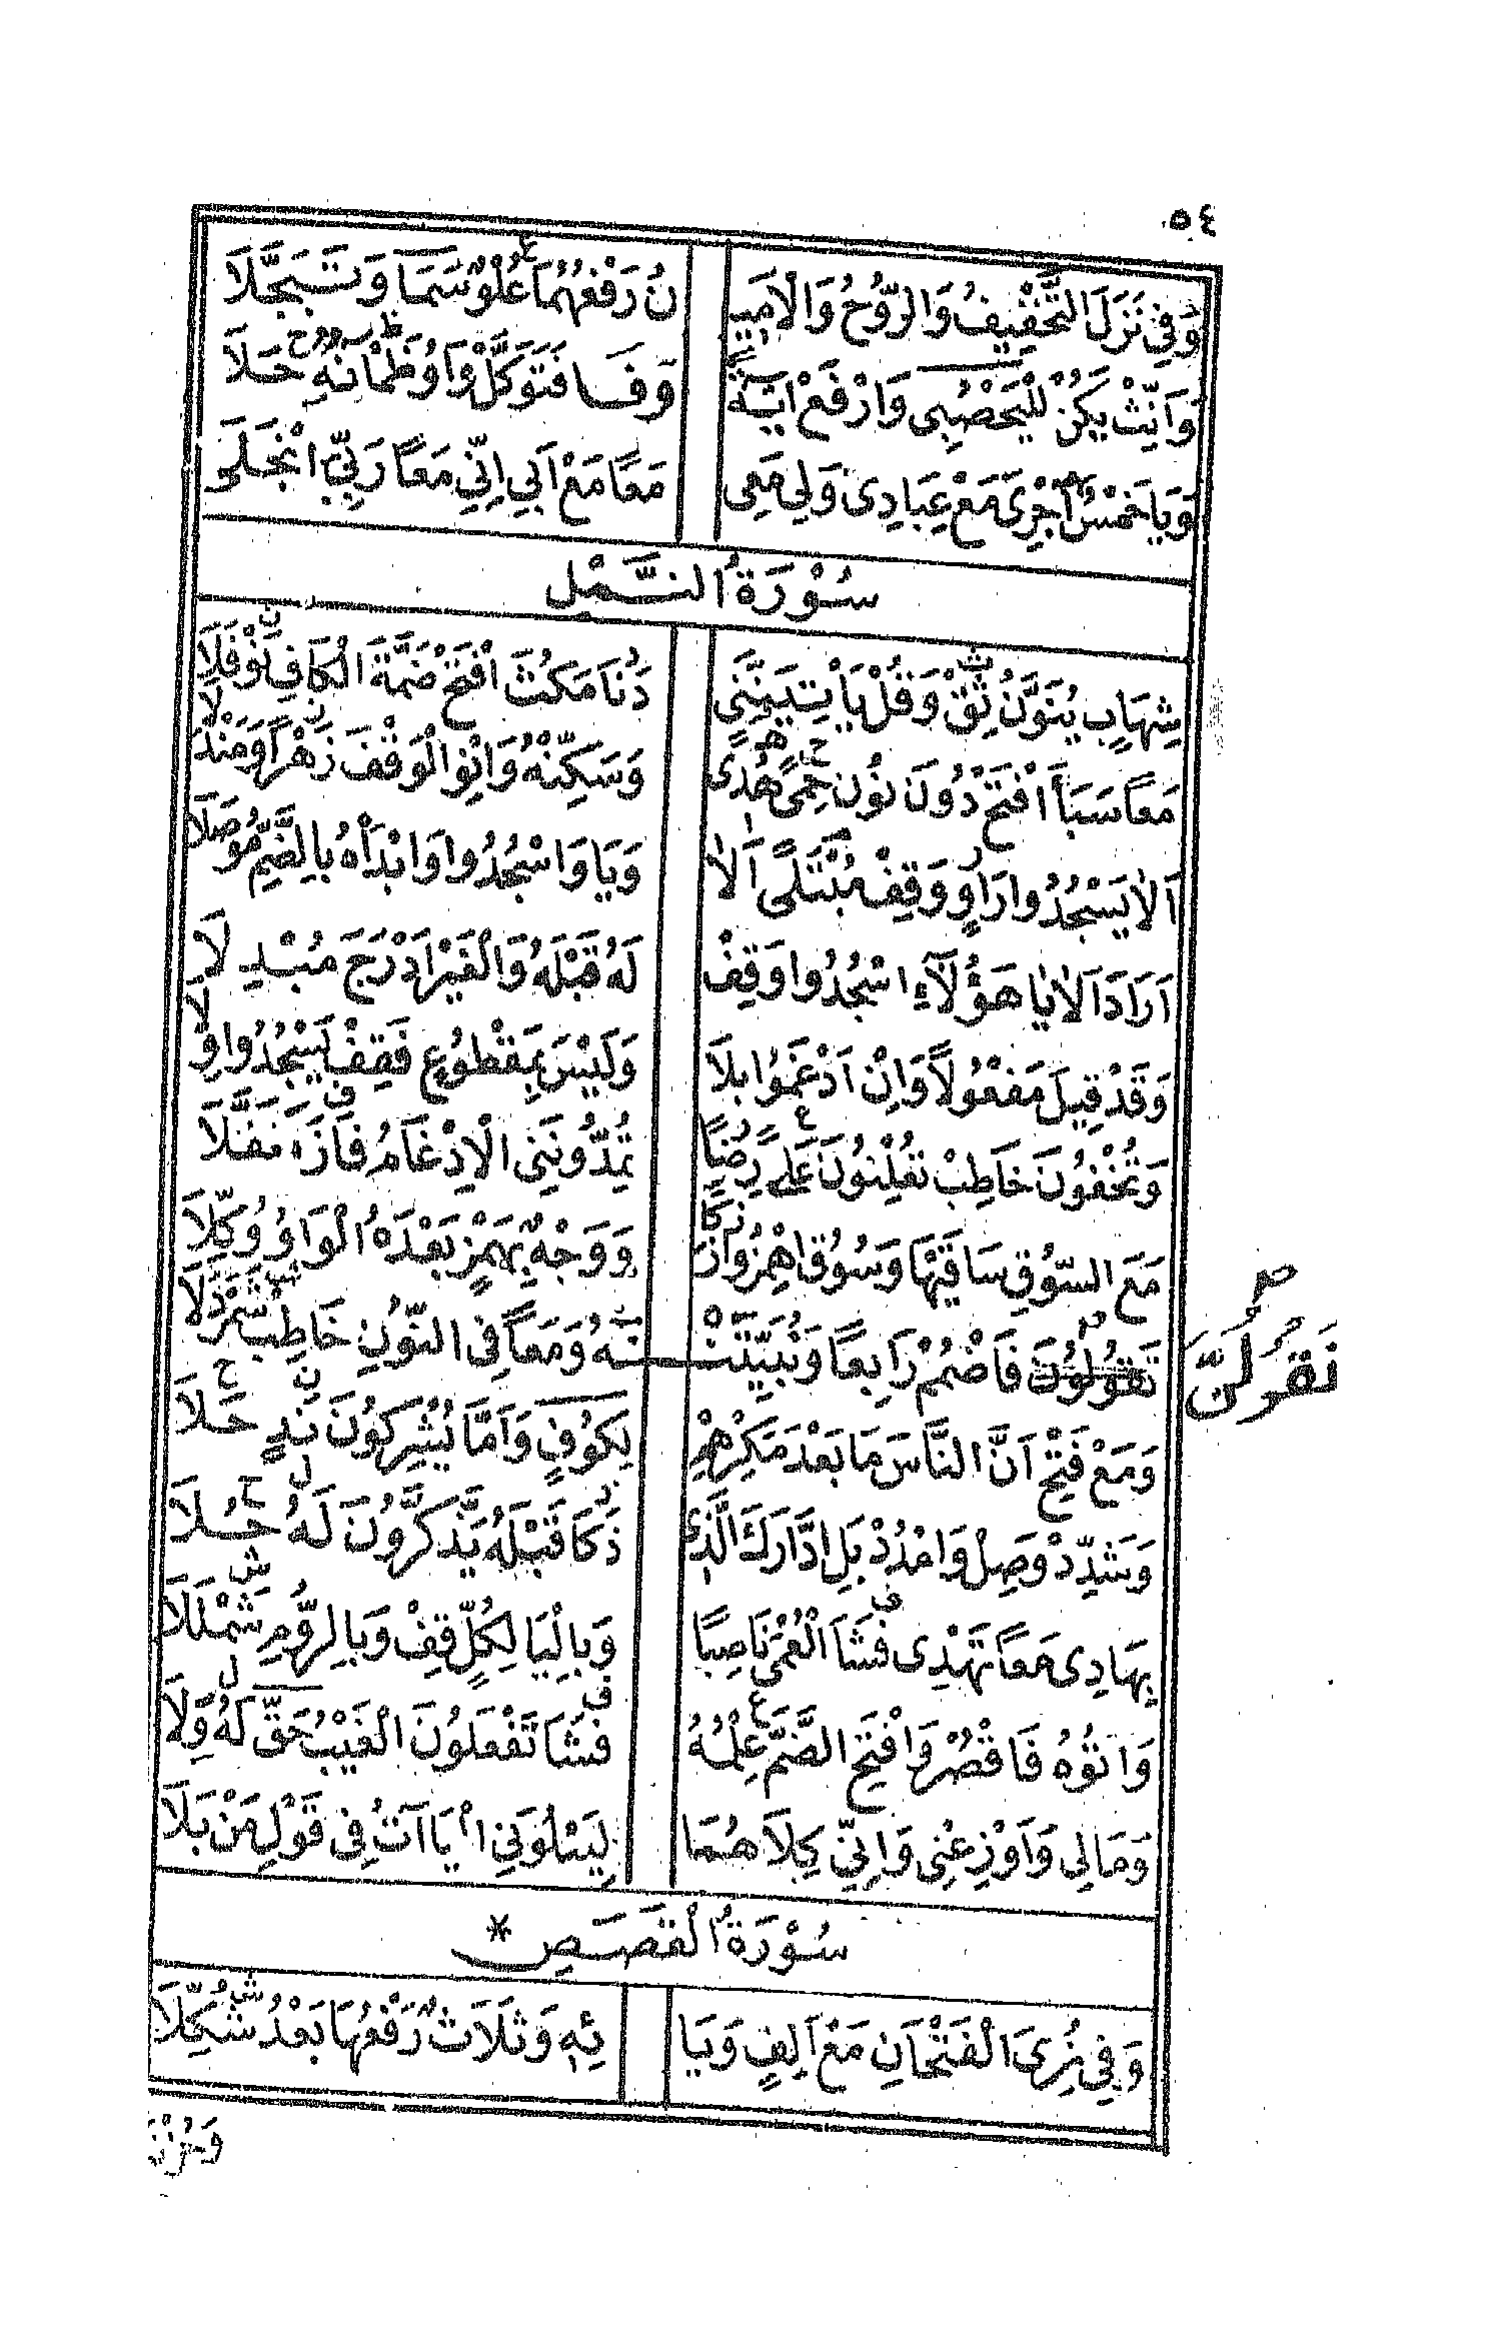 ٥٤
وَفِي نَزَلَ التَّخْفِيفُ وَالرُّوحُ وَالْأَمِيـ نُ رَفْعُهُمَا عُلْوٌ سَمَا وَتَبَجَّلَا
وَأَنِّثْ يَكُنْ لِلْيَحْصُبِي وَارْفَعْ اٰيَةً وَفَا فَتَوَكَّلْ وَاوُ ظَمْاٰنِهِ حَلَا
وَيَا خَمْسُ أَجْرِيَ مَعْ عِبَادِى وَلِي مَعِى مَعًا مَعْ أَبِي إِنِّي مَعًا رَبِّيَ انْجَلَى
سُوْرَةُ النَّمْلِ
شِهَابٍ بِنُوْنٍ ثِقْ وَقُلْ يَأْتِيَنَّنِي دَنَا مَكُثَ افْتَحْ ضَمَّةَ الْكَافِ نَوْفَلَا
مَعًا سَبَأَ افْتَحْ دُوْنَ نُوْنٍ حِمًى هُدًى وَسَكِّنْهُ وَانْوِ الْوَقْفَ زَهْرًا وَمَنْدَلَا
أَلَا يَسْجُدُوا رَاوٍ وَقِفْ مُبْتَلًى أَلَا وَيَا وَاسْجُدُوا وَابْدَأْهُ بِالضَّمِّ مُوصِلَا
أَرَادَ أَلَا يَا هَؤُلَآءِ اسْجُدُوا وَقِفْ لَهُ قَبْلَهُ وَالْغَيْرُ أَدْرَجَ مُبْدِلَا
وَقَدْ قِيلَ مَفْعُولًا وَإِنْ أَدْغَمُوا بِلَا وَلَيْسَ بِمَقْطُوعٍ فَقِفْ يَسْجُدُوا وِلَا
وَتُخْفُونَ خَاطِبْ تُعْلِنُونَ عَلَى رِضًا تُمِدُّونَنِي الْإِدْغَامُ فَازَ فَثَقَّلَا
مَعَ السُّوْقِ سَاقَيْهَا وَسُوْقِ اهْمِزُوا زَكَا وَوَجْهٌ بِهَمْزٍ بَعْدَهُ الْوَاوُ وُكِّلَا
تَقُولُونَ فَاضْمُمْ رَابِعًا وَنُبَيِّتَنْـ ـنَهُ وَمَعًا فِي النُّوْنِ خَاطِبْ شَمَرْدَلَا
نَقُولَنَّ
وَمَعْ فَتْحِ أَنَّ النَّاسَ مَا بَعْدَ مَكْرِهِمْ لِكُوْفٍ وَأَمَّا يُشْرِكُوْنَ نَدٍ حَلَا
وَشَدِّدْ وَصِلْ وَامْدُدْ بَلِ ادَّارَكَ الَّذِى ذَكَا قَبْلَهُ يَذَّكَّرُوْنَ لَهُ حُلَا
بِهَادِى مَعًا تَهْدِى فَشَا الْعُمْيَ نَاصِبًا وَبِالْيَا لِكُلٍّ قِفْ وَبِالرُّومِ شَمْلَلَا
وَاتُوْهُ فَاقْصُرْ وَافْتَحِ الضَّمَّ عِلْمُهُ فَشَا تَفْعَلُوْنَ الْغَيْبُ حَقٌّ لَهُ وِلَا
وَمَالِي وَأَوْزِعْنِي وَإِنِّي كِلَاهُمَا لِيَبْلُوَنِي الْيَاآتُ فِي قَوْلِ مَنْ بَلَا
سُوْرَةُ الْقَصَصِ *
وَفِي نُرِيَ الْفَتْحَانِ مَعْ أَلِفٍ وَيَا ئِهِ وَثَلَاثٌ رَفْعُهَا بَعْدُ شُكِّلَا
وَحُزْنًا